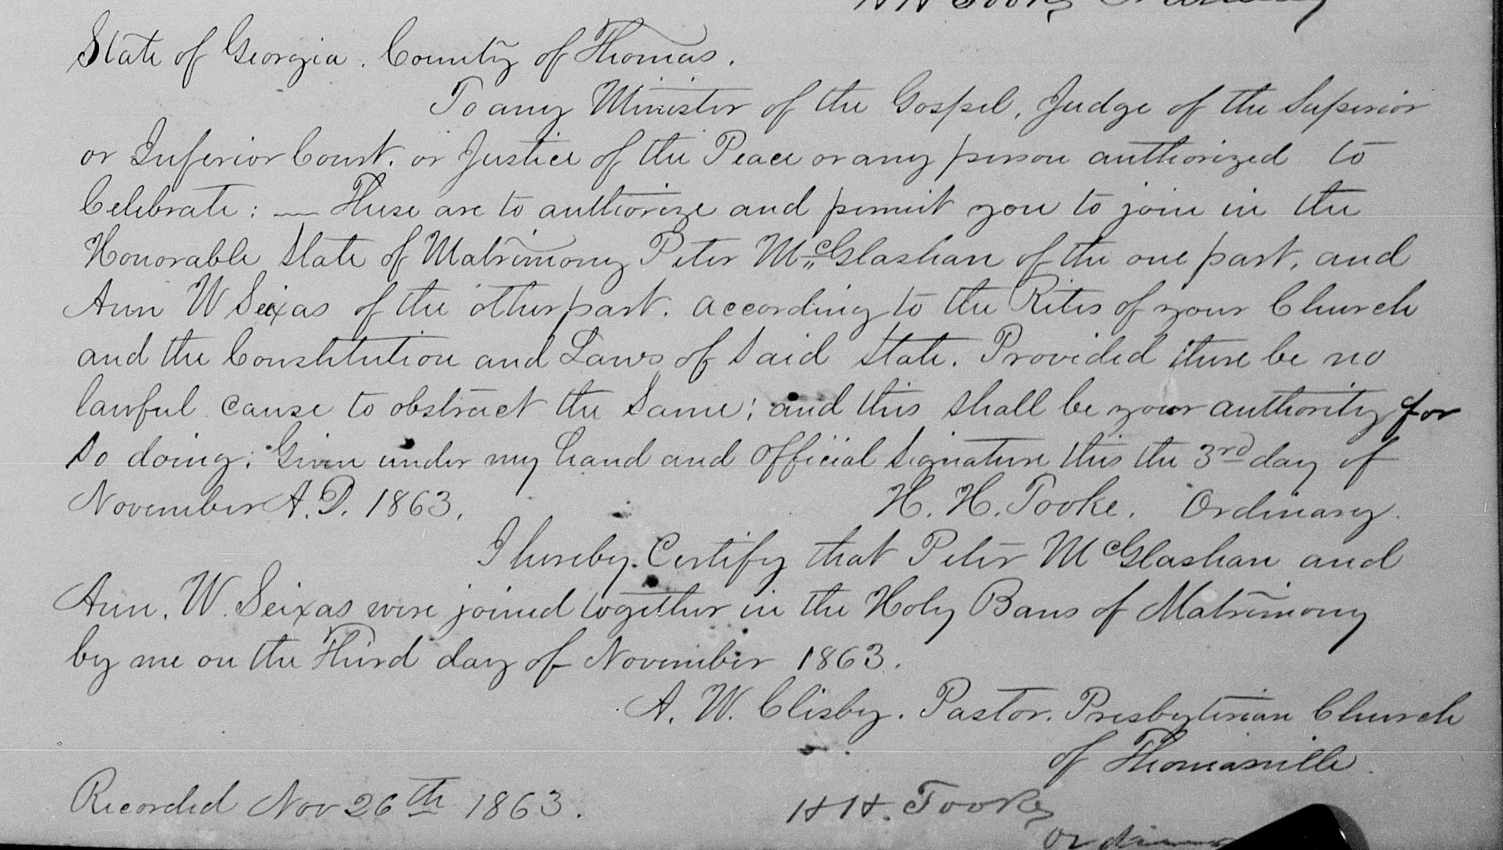 H H Tooke Ordinary
State of Georgia. County of Thomas.
To any Minister of the Gospel, Judge of the Superior
or Inferior Court, or Justice of the Peace or any person authorized to
Celebrate: — These are to authorize and permit you to join in the
Honorable State of Matrimony Peter McGlashan of the one part, and
Ann W Seixas of the other part. according to the Rites of your Church
and the Constitution and Laws of Said State. Provided there be no
lawful cause to obstruct the Same; and this shall be your authority for
so doing; Given under my hand and official signature this the 3rd day of
November A.D. 1863. H. H. Tooke. Ordinary.
I hereby Certify that Peter McGlashan and
Ann. W. Seixas were joined together in the Holy Bans of Matrimony
by me on the Third day of November 1863.
A. W. Clisby. Pastor. Presbyterian Church
of Thomasville.
Recorded Nov 26th 1863. H H. Tooke
Ordinary